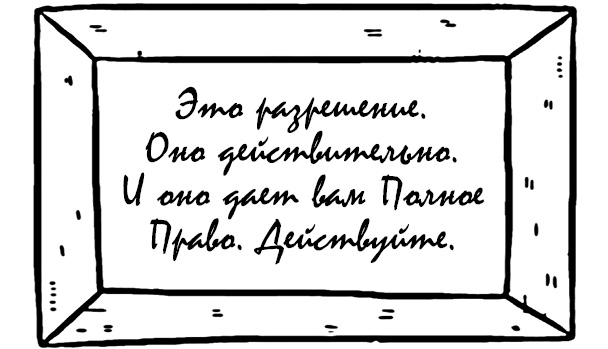 Это разрешение.
Оно действительно.
И оно дает вам Полное
Право. Действуйте.